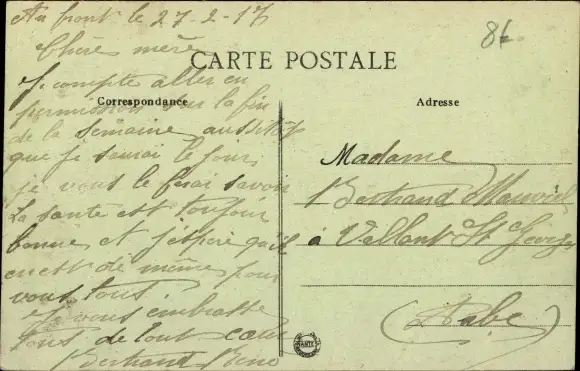 Au front le 27-2-17
Chère mère
CARTE POSTALE
Je compte aller en
Correspondance
permission sur la fin
de la semaine aussitôt
que je saurai le jour
je vous le ferai savoir
La santé est toujour
bonne et j'espère qu'il
en est de même pour
vous tous
Je vous embrasse
tous de tout cœur
Bertrand René
84
Adresse
Madame
Bertrand
à Vallant St Georges
(Aube)